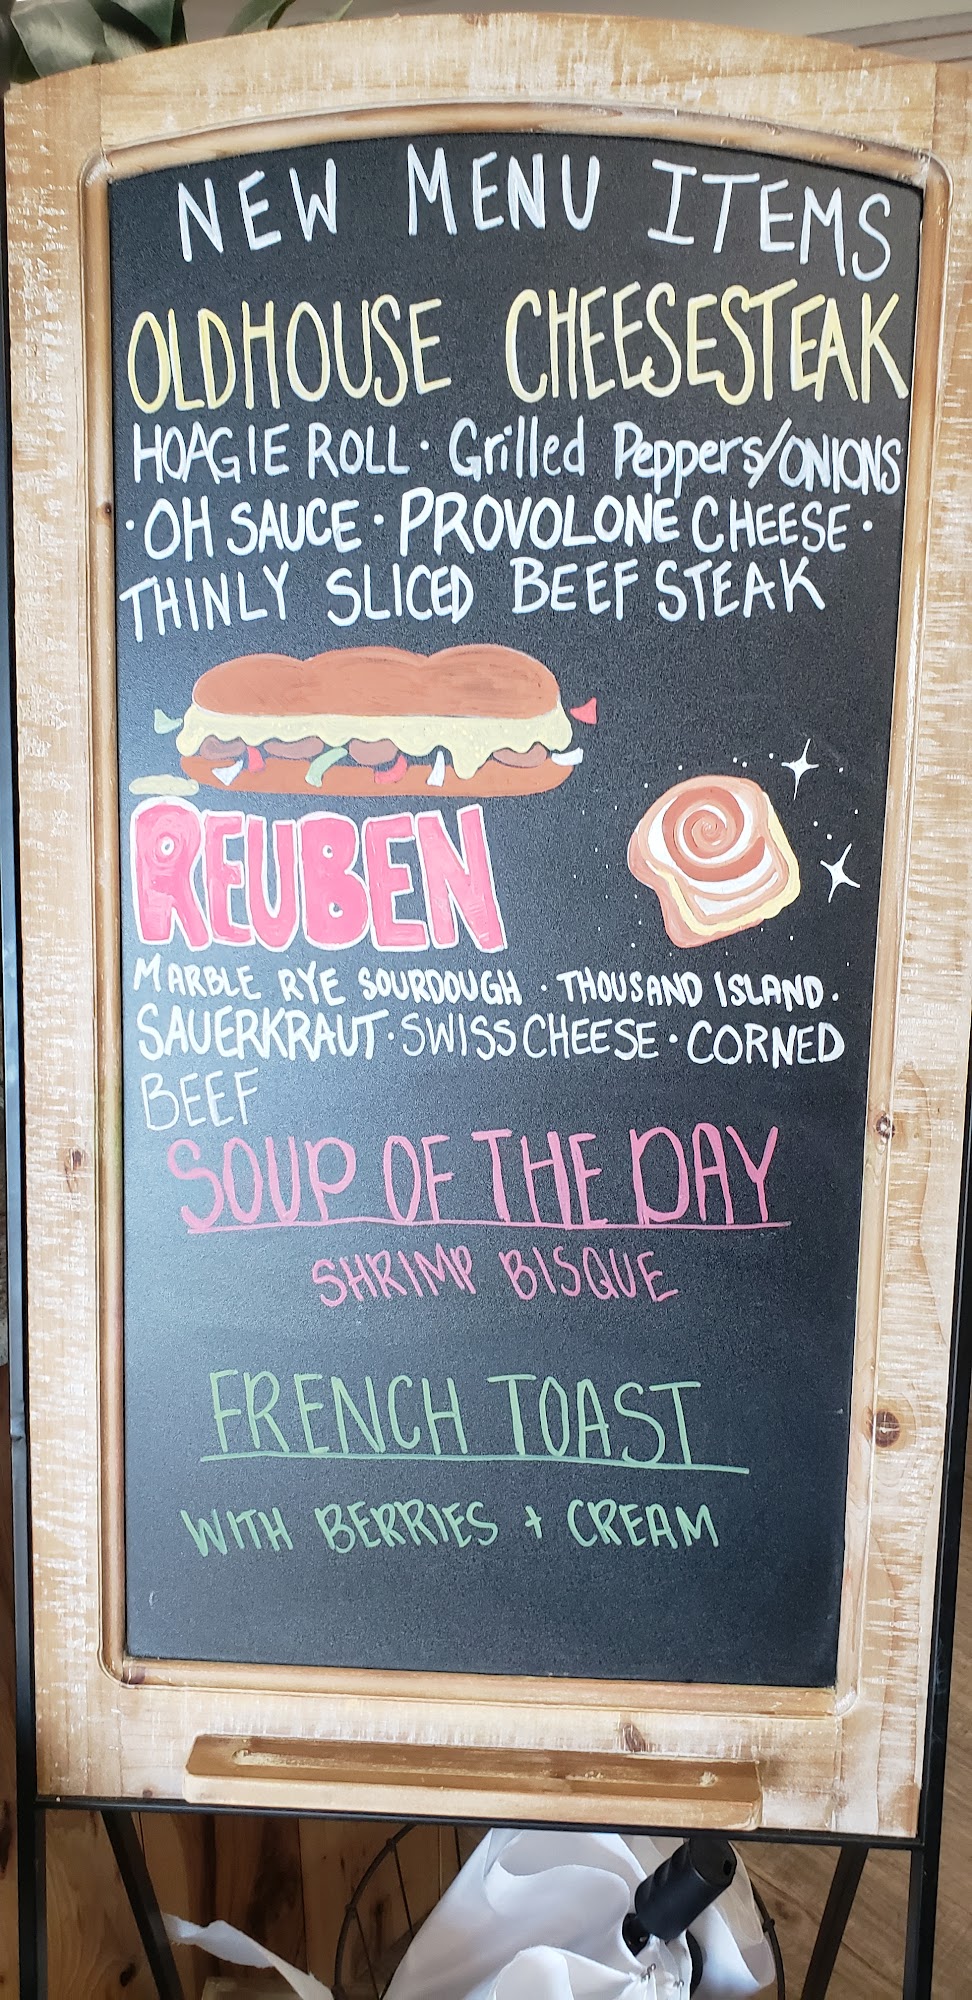 NEW MENU ITEMS
OLDHOUSE CHEESESTEAK
HOAGIE ROLL · Grilled Peppers/ONIONS
· OH SAUCE · PROVOLONE CHEESE ·
THINLY SLICED BEEF STEAK
REUBEN
MARBLE RYE SOURDOUGH · THOUSAND ISLAND ·
SAUERKRAUT · SWISS CHEESE · CORNED
BEEF
SOUP OF THE DAY
SHRIMP BISQUE
FRENCH TOAST
WITH BERRIES + CREAM